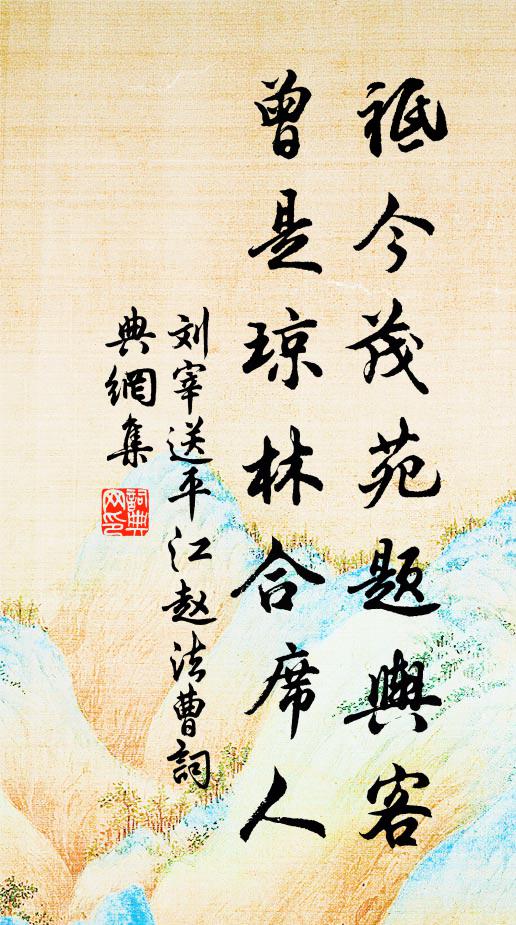 祗今茂苑题舆客
曾是琼林合席人
刘宰送平江赵法曹詞
典網集
詞典
网印